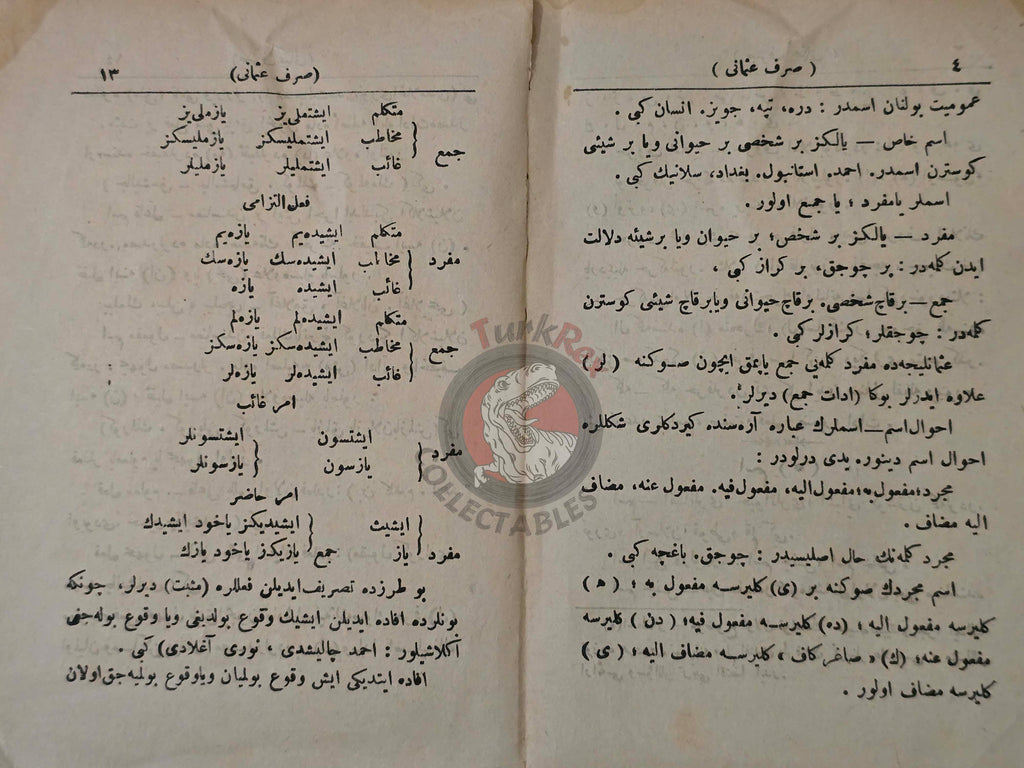 ٤ ( صرف عثمانی )
عمومیت بولنان اسمدر : دره، تپه، جویز. انسان کبی .
اسم خاص — یالکز بر شخصی بر حیوانی ویا بر شیئی
کوسترن اسمدر. احمد. استانبول. بغداد، سلانیك کبی .
اسملر یا مفرد ؛ یا جمع اولور .
مفرد — یالکز بر شخص؛ بر حیوان ویا بر شیئه دلالت
ایدن کلمه‌در : بر چوجق، بر کراز کبی ،
جمع — برقاچ شخصی. برقاچ حیوانی ویا برقاچ شیئی کوسترن
کلمه‌در : چوجقلر؛ کرازلر کبی .
عثمانلیجه‌ده مفرد کلمه‌نی جمع یاپمق ایچون صوکنه ( لر )
علاوه ایدرلر بوکا (ادات جمع) دیرلر.
احوال اسم — اسملرك عباره آره‌سنده کیردکلری شکللره
احوال اسم دینور. یدی درلودر :
مجرد؛ مفعول به؛ مفعول الیه، مفعول فیه. مفعول عنه، مضاف
الیه مضاف .
مجرد کلمه‌نك حال اصلیسیدر : چوجق. باغچه کبی .
اسم مجردك صوکنه بر (ی) کلیرسه مفعول به ؛ ( ه )
کلیرسه مفعول الیه ؛ (ده) کلیرسه مفعول فیه؛ ( دن ) کلیرسه
مفعول عنه؛ (ك) « صاغر کاف » کلیرسه مضاف الیه ؛ ( ی )
کلیرسه مضاف اولور .
(صرف عثمانی) ١٣
متکلم ایشتملی‌یز یازملی‌یز
جمع { مخاطب ایشتملیسکز یازملیسکز
غائب ایشتملیلر یازملیلر
فعل التزامی
متکلم ایشیده‌یم یازه‌یم
مفرد { مخاطب ایشیده‌سك یازه‌سك
غائب ایشیده یازه
متکلم ایشیده‌لم یازه‌لم
جمع { مخاطب ایشیده‌سکز یازه‌سکز
غائب ایشیده‌لر یازه‌لر
امر غائب
مفرد { ایشتسون { ایشتسونلر
یازسون یازسونلر
امر حاضر
مفرد { ایشیت جمع { ایشیدیکز یاخود ایشیدك
یاز یازیکز یاخود یازك
بو طرزده تصریف ایدیلن فعللره (مثبت) دیرلر، چونکه
بونلرده افاده ایدیلن ایشیك وقوع بولدیغی ویا وقوع بوله‌جغی
آکلاشیلور : احمد چالیشدی ، نوری آغلادی) کبی .
افاده ایتدیکی ایش وقوع بولمیان ویا وقوع بولمیه‌جق اولان
TurkRex
COLLECTABLES